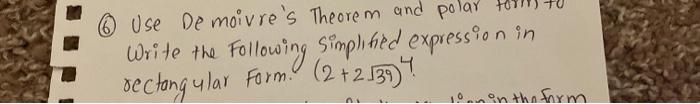 ⑥ Use De moivre's Theorem and polar form to
Write the Following Simplified expression in
rectangular Form. (2+2√39)⁴.
in the form